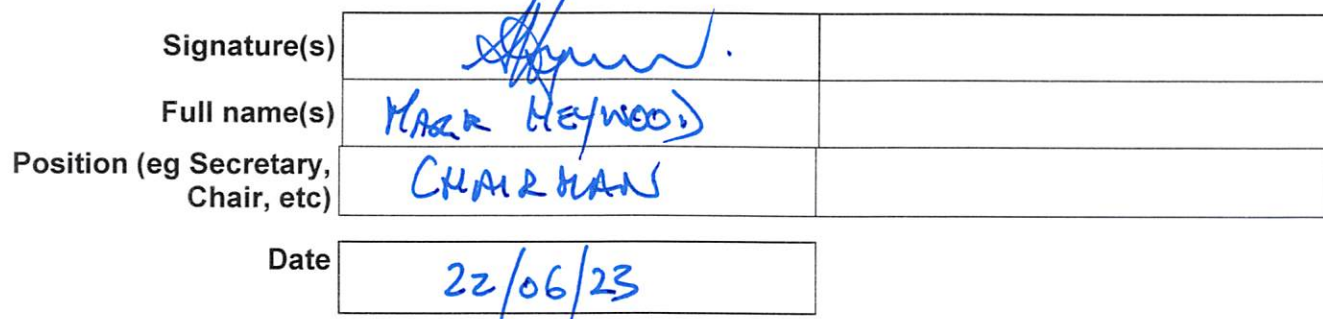 Signature(s)
Full name(s) MARK HEYWOOD
Position (eg Secretary,
Chair, etc) CHAIRMAN
Date 22/06/23